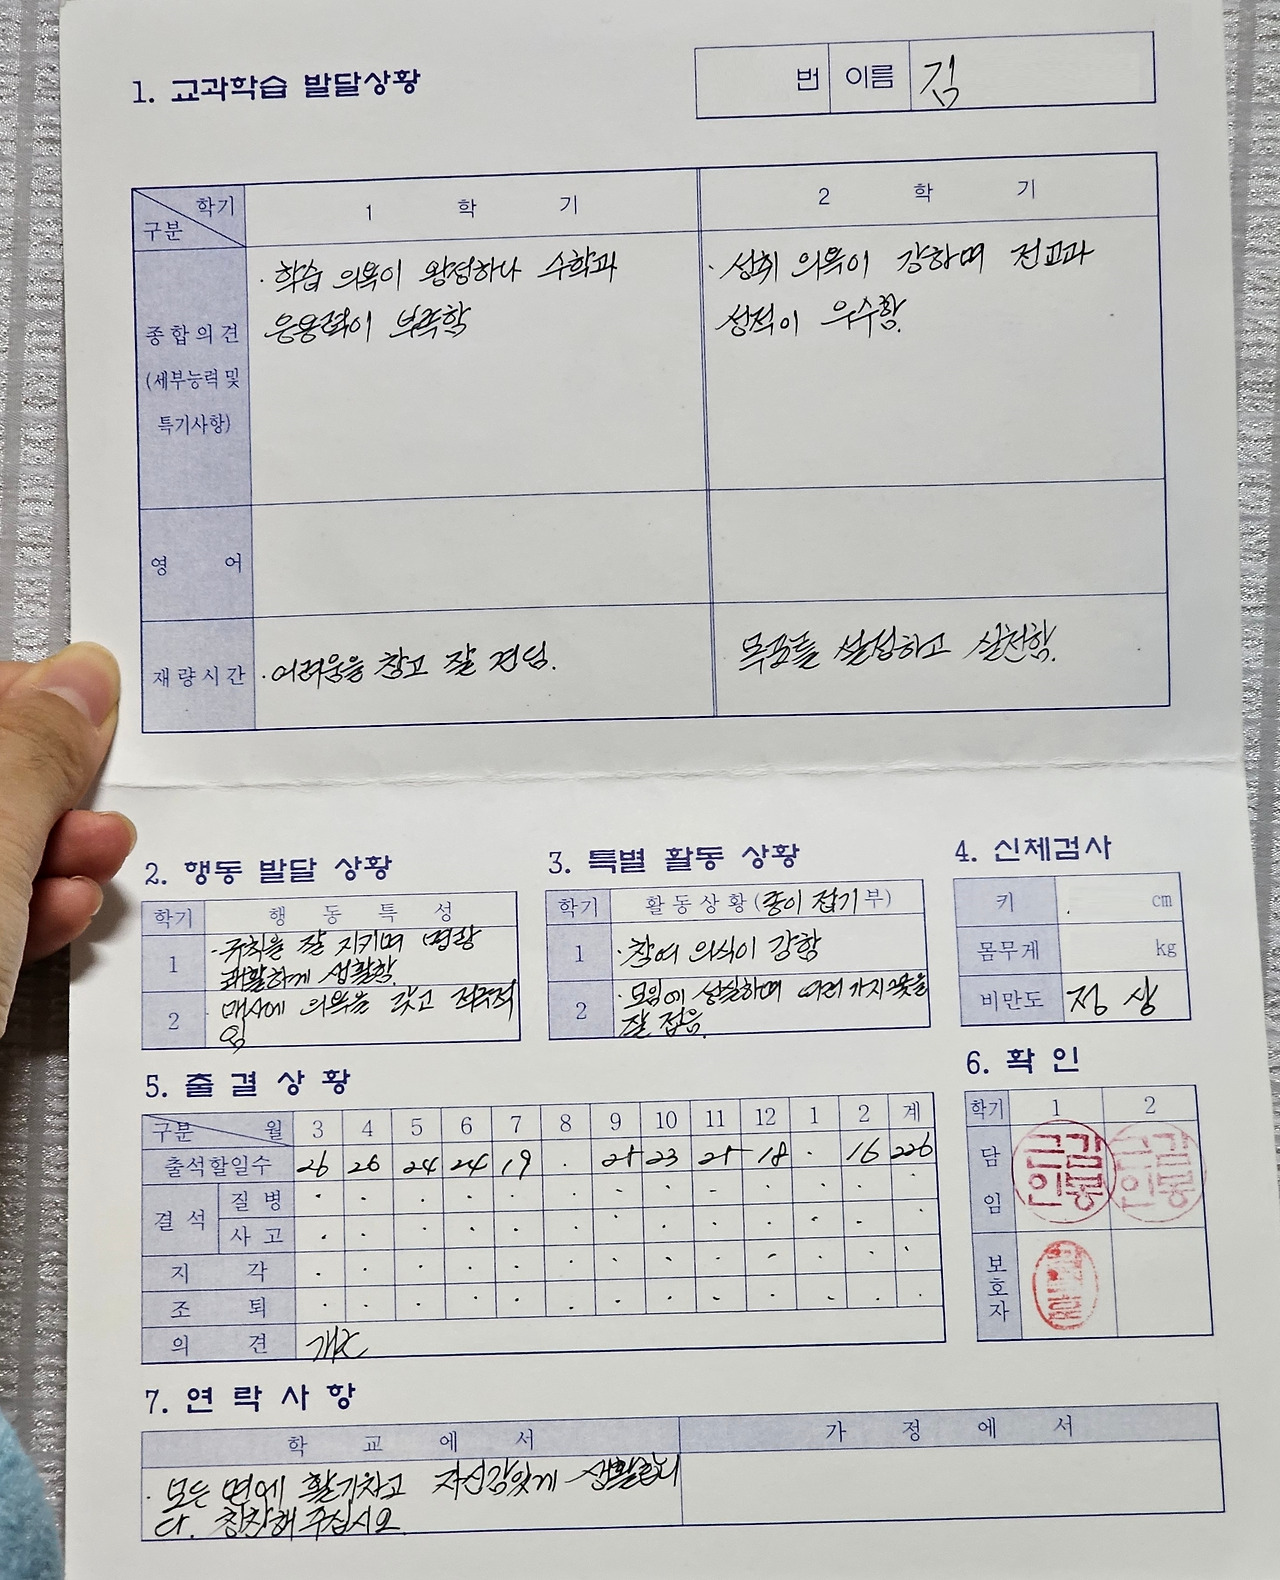 1. 교과학습 발달상황
번 이름 김
학기 구분 1 학 기 2 학 기
종합의견
(세부능력 및
특기사항)
· 학습 의욕이 왕성하나 수학과
응용력이 부족함
· 성취 의욕이 강하며 전교과
성적이 우수함.
영 어
재량시간 · 어려움을 참고 잘 견딤. 목표를 설정하고 실천함.
2. 행동 발달 상황
학기 행 동 특 성
1 · 규칙을 잘 지키며 명랑
쾌활하게 생활함.
2 · 매사에 의욕을 갖고 적극적
임
3. 특별 활동 상황
학기 활동상황(종이 접기부)
1 · 참여 의식이 강함
2 · 모임에 성실하며 여러 가지 꽃을
잘 접음.
4. 신체검사
키 cm
몸무게 kg
비만도 정 상
5. 출 결 상 황
구분 월 3 4 5 6 7 8 9 10 11 12 1 2 계
출석할일수 26 26 24 24 19 · 25 23 25 18 · 16 226
결 석 질 병
사 고
지 각
조 퇴
의 견 개근
6. 확 인
학기 1 2
담 임
보호자
7. 연 락 사 항
학 교 에 서 가 정 에 서
· 모든 면에 활기차고 자신감있게 생활합니
다. 칭찬해 주십시오.